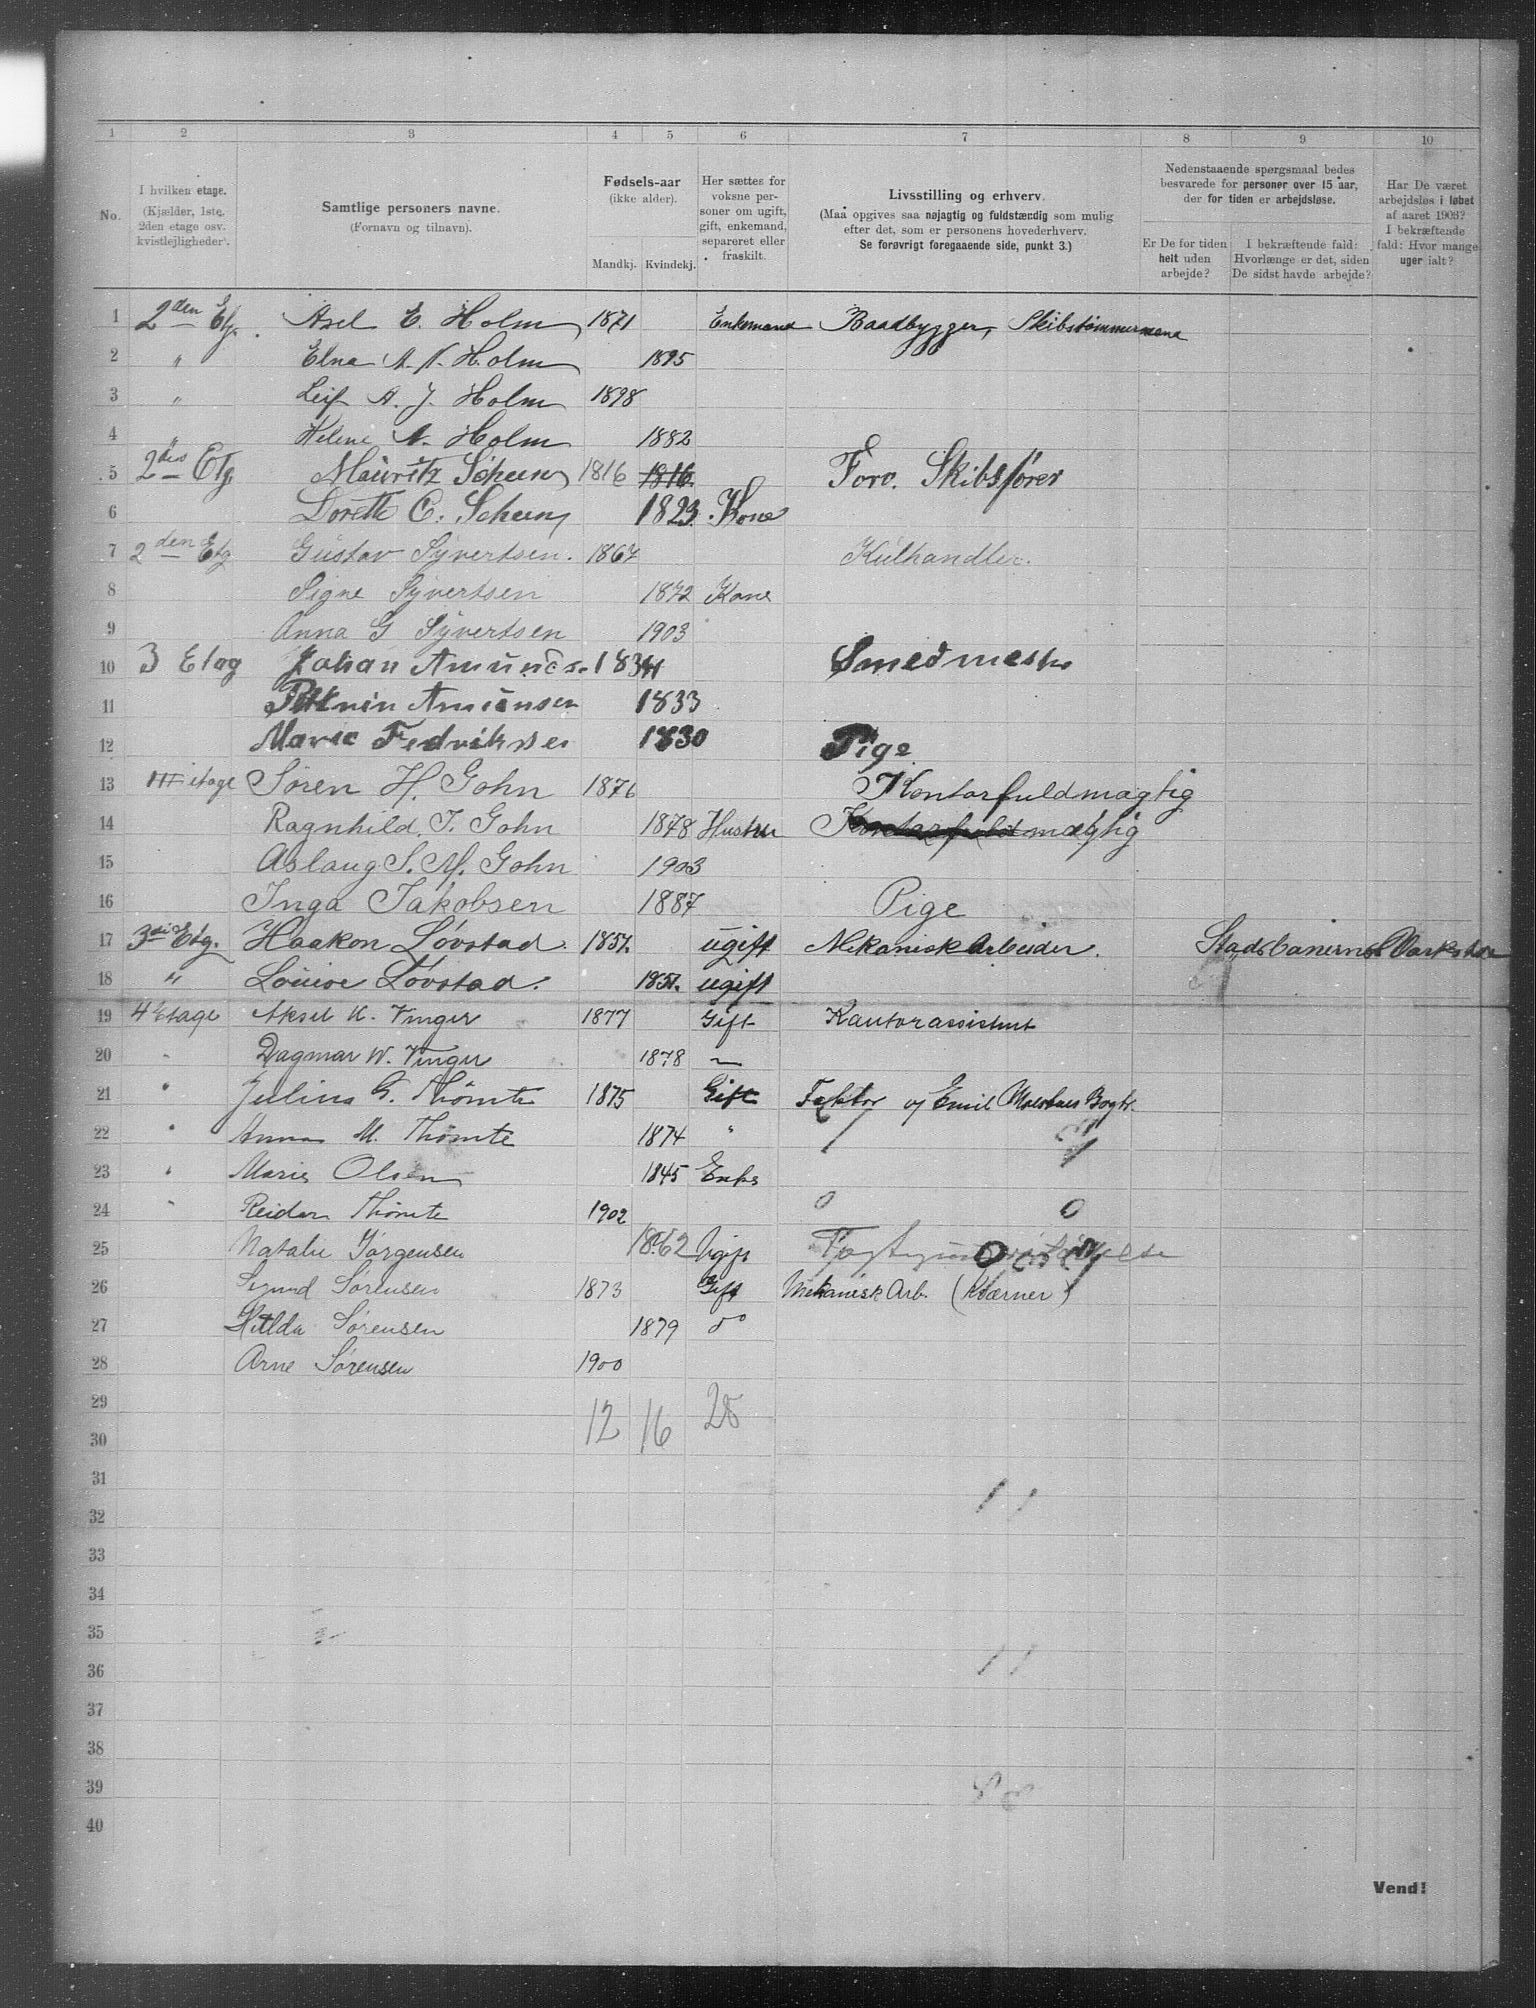 1 2 3 4 5 6 7 8 9 10
No.
I hvilken etage.
(Kjælder, 1ste,
2den etage osv.
kvistlejligheder.
Samtlige personers navne.
(Fornavn og tilnavn).
Fødsels-aar
(ikke alder).
Mandkj. Kvindekj.
Her sættes for
voksne per-
soner om ugift,
gift, enkemand,
separeret eller
fraskilt.
Livsstilling og erhverv.
(Maa opgives saa nøjagtig og fuldstændig som mulig
efter det, som er personens hovederhverv.
Se forøvrigt foregaaende side, punkt 3.)
Nedenstaaende spørgsmaal bedes
besvarede for personer over 15 aar,
der for tiden er arbejdsløse.
Er De for tiden
helt uden
arbejde?
I bekræftende fald:
Hvorlænge er det, siden
De sidst havde arbejde?
Har De været
arbejdsløs i løbet
af aaret 1903?
I bekræftende
fald: Hvor mange
uger ialt?
1 2den Etg. Axel E. Holm 1871 Enkemand Baadbygger, Skibstømmermand
2 " Elna A. N. Holm 1895
3 " Leif A. J. Holm 1898
4 " Helene A. Holm 1882
5 2den Etg. Mauritz Scheen 1816 1816. Forv. Skibsfører
6 Dorette C. Scheen 1823. Kone
7 2den Etg Gustav Syvertsen. 1867 Kulhandler.
8 Signe Syvertsen 1872 Kone
9 Anna G Syvertsen 1903
10 3 Etag Johan Amunds. 1834 Smedmester
11 Amundsen 1833
12 Marie Fedriksen 1830 Pige.
13 III etage Søren H. Gohn 1876 Kontorfuldmægtig
14 Ragnhild. I. Gohn 1878 Hustru Kontorfuldmægtig
15 Aslaug S. M. Gohn 1903
16 Inga Jakobsen 1887 Pige
17 3die Etg. Haakon Løvstad. 1857. ugift Mekanisk Arbeider. Stadsbanernes Værksted
18 " Louise Løvstad. 1857. ugift
19 4 Etage Aksel K. Vinger 1877 Gift Kontorassistent
20 " Dagmar W. Vinger 1878 "
21 " Julius G. Thømte 1875 Gift Faktor Emil Moestues Bogtr.
22 " Anna M. Thømte 1874 "
23 " Marie Olsen 1845 Enke
24 " Reidar Thømte 1902
25 Natalie Jørgensen 1862 Ugift
26 Sigurd Sørensen 1873 Gift Mekanisk Arb. (Kværner)
27 Hilda Sørensen 1879 do
28 Arne Sørensen 1900
29
30 12 16 28
31
32
33
34
35
36
37
38
39
40
Vend!